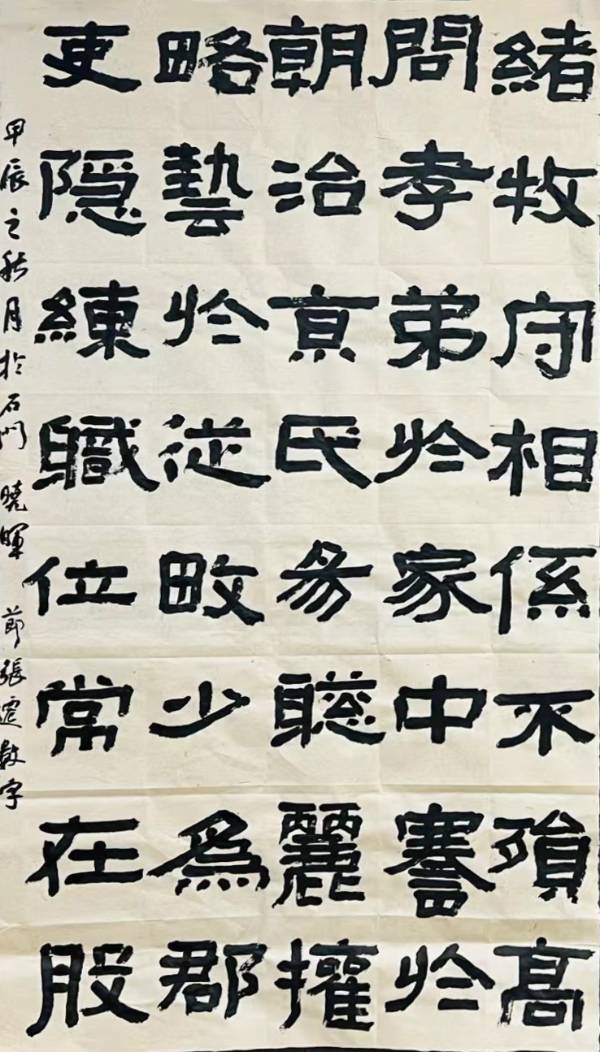 緒牧守相係不殞高
問孝弟於家中謇於
朝治京氏易聰麗權
略藝於從畋少爲郡
吏隱練職位常在股
甲辰之秋月於石門 曉暉 節張遷数字